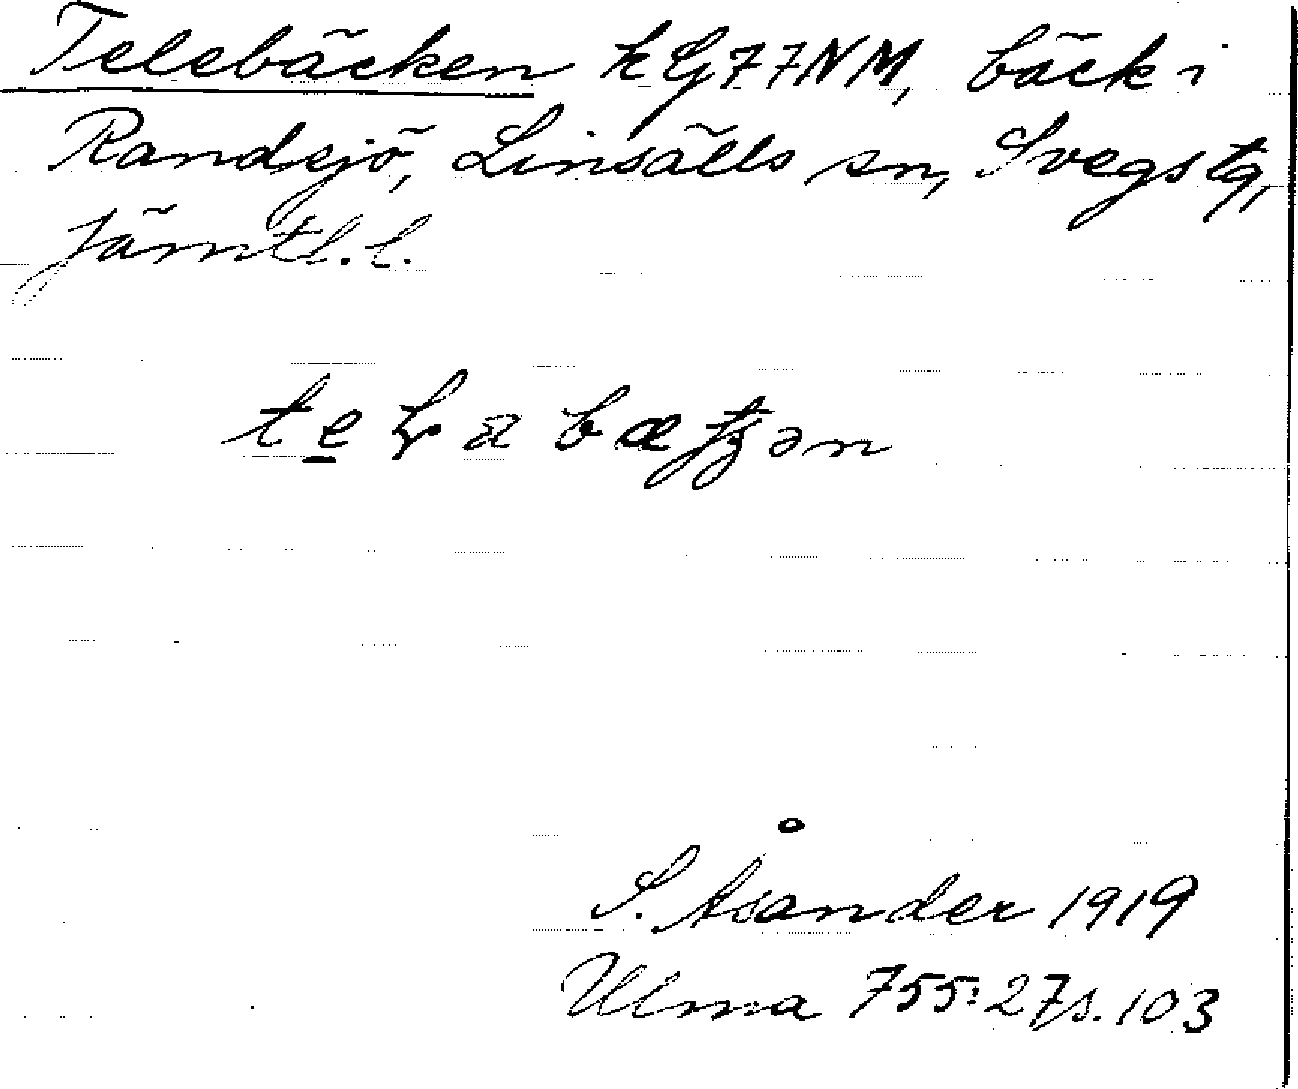 Telebäcken hG77NM, bäck i
Randsjö, Linsälls sn, Svegs tg,
Jämtl. l.
S. Åsander 1919
Ulma 755:27 s. 103